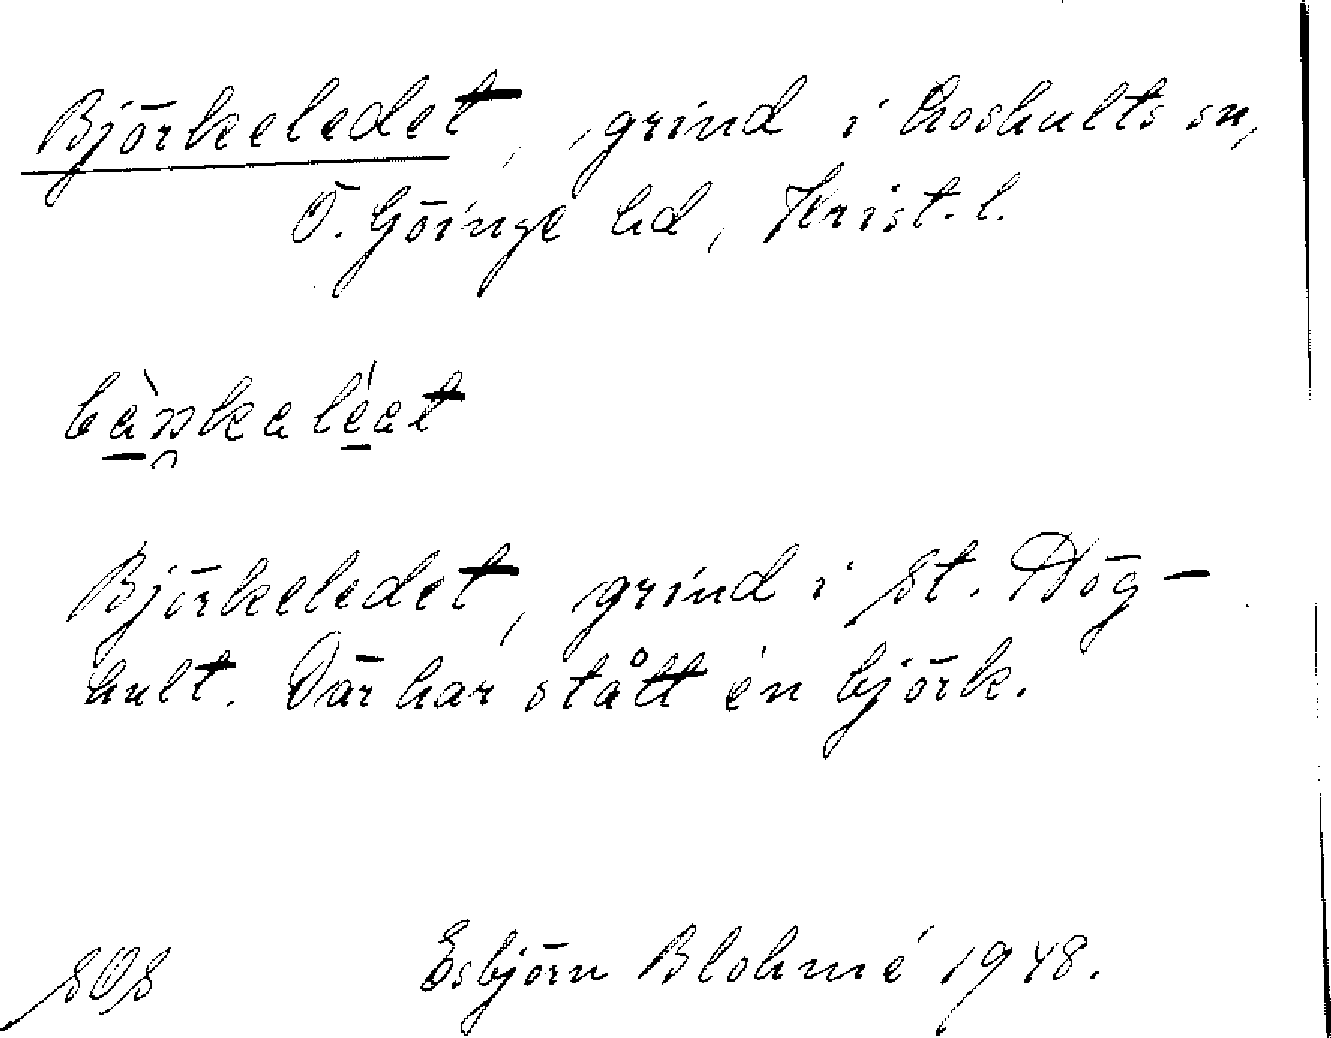 Björkeledet, grind i Loshults sn,
Ö. Göinge hd, Krist. l.
Björkeledet, grind i St.
hult. Där har stått en björk.
Esbjörn Blohmé 1948.
SOS